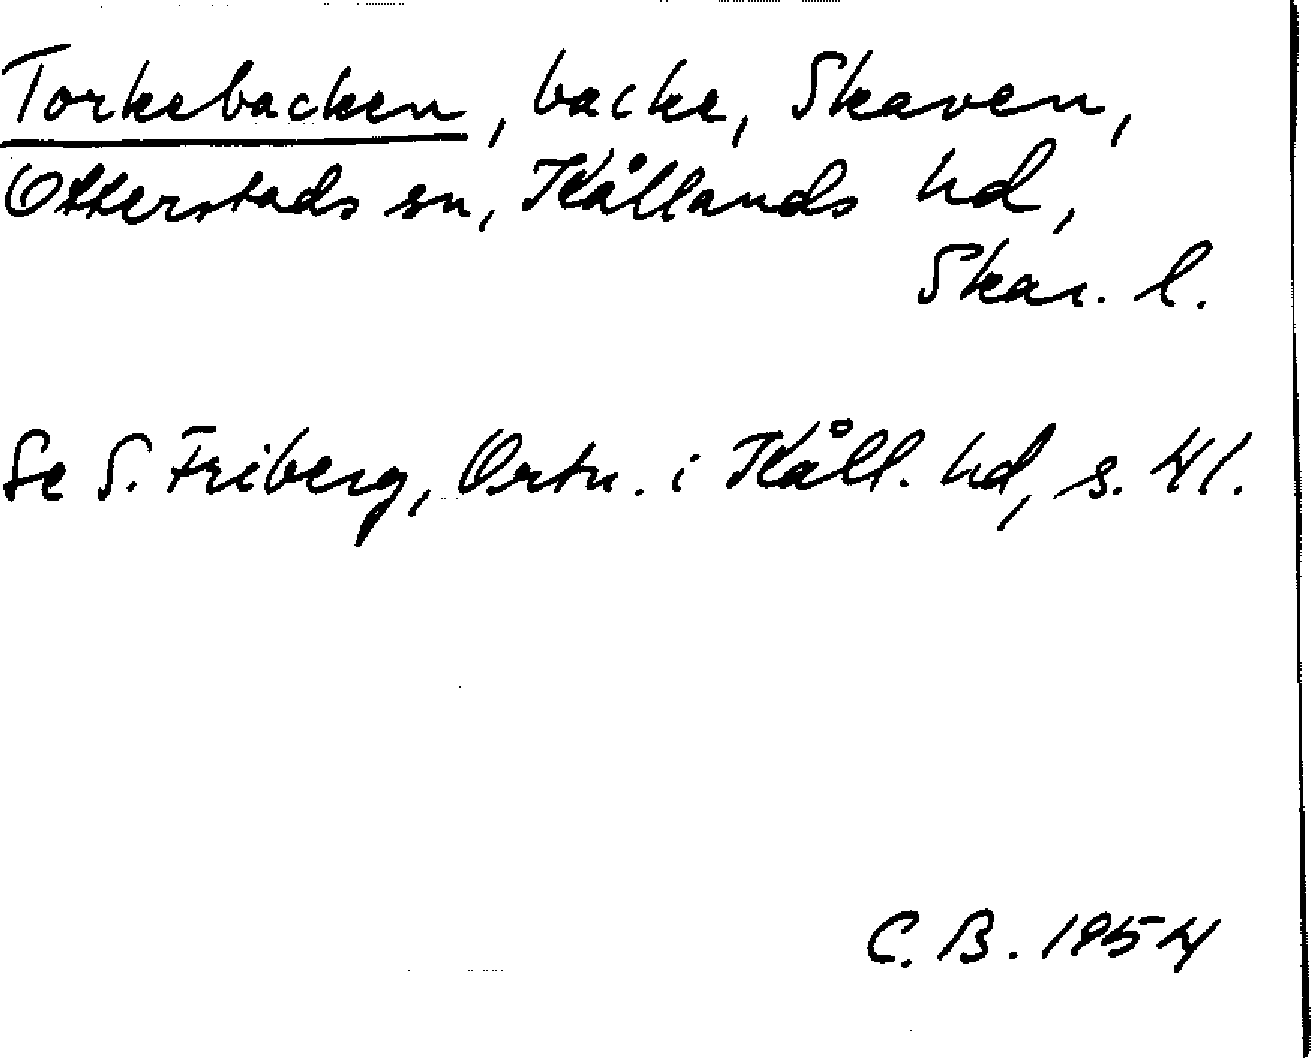 Torkebacken, backe, Skaven,
Otterstads sn, Kållands hd,
Skar. l.
Se S. Friberg, Ortn. i Kåll. hd, s. 41.
C. B. 1954